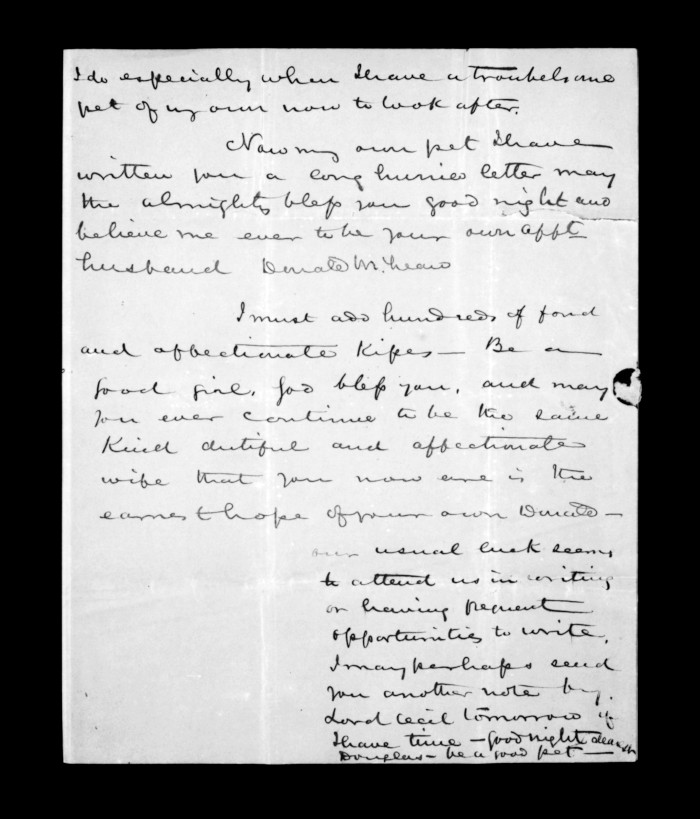 I do especially when I have a troubelsome
pet of my own now to look after.
Now my own pet I have
written you a long hurried letter may
the almighty bless you good night and
believe me ever to be your own afft
husband Donald McLean
I must add hundreds of fond
and affectionate Kisses — Be a
good girl, God bless you, and may
you ever continue to be the same
Kind dutiful and affectionate
wife that you now are is the
earnest hope of your own Donald —
our usual luck seems
to attend us in writing
or having frequent
opportunities to write,
I may perhaps send
you another note by
Lord Cecil tomorrow if
I have time — good night dearest
Douglas — be a good pet —